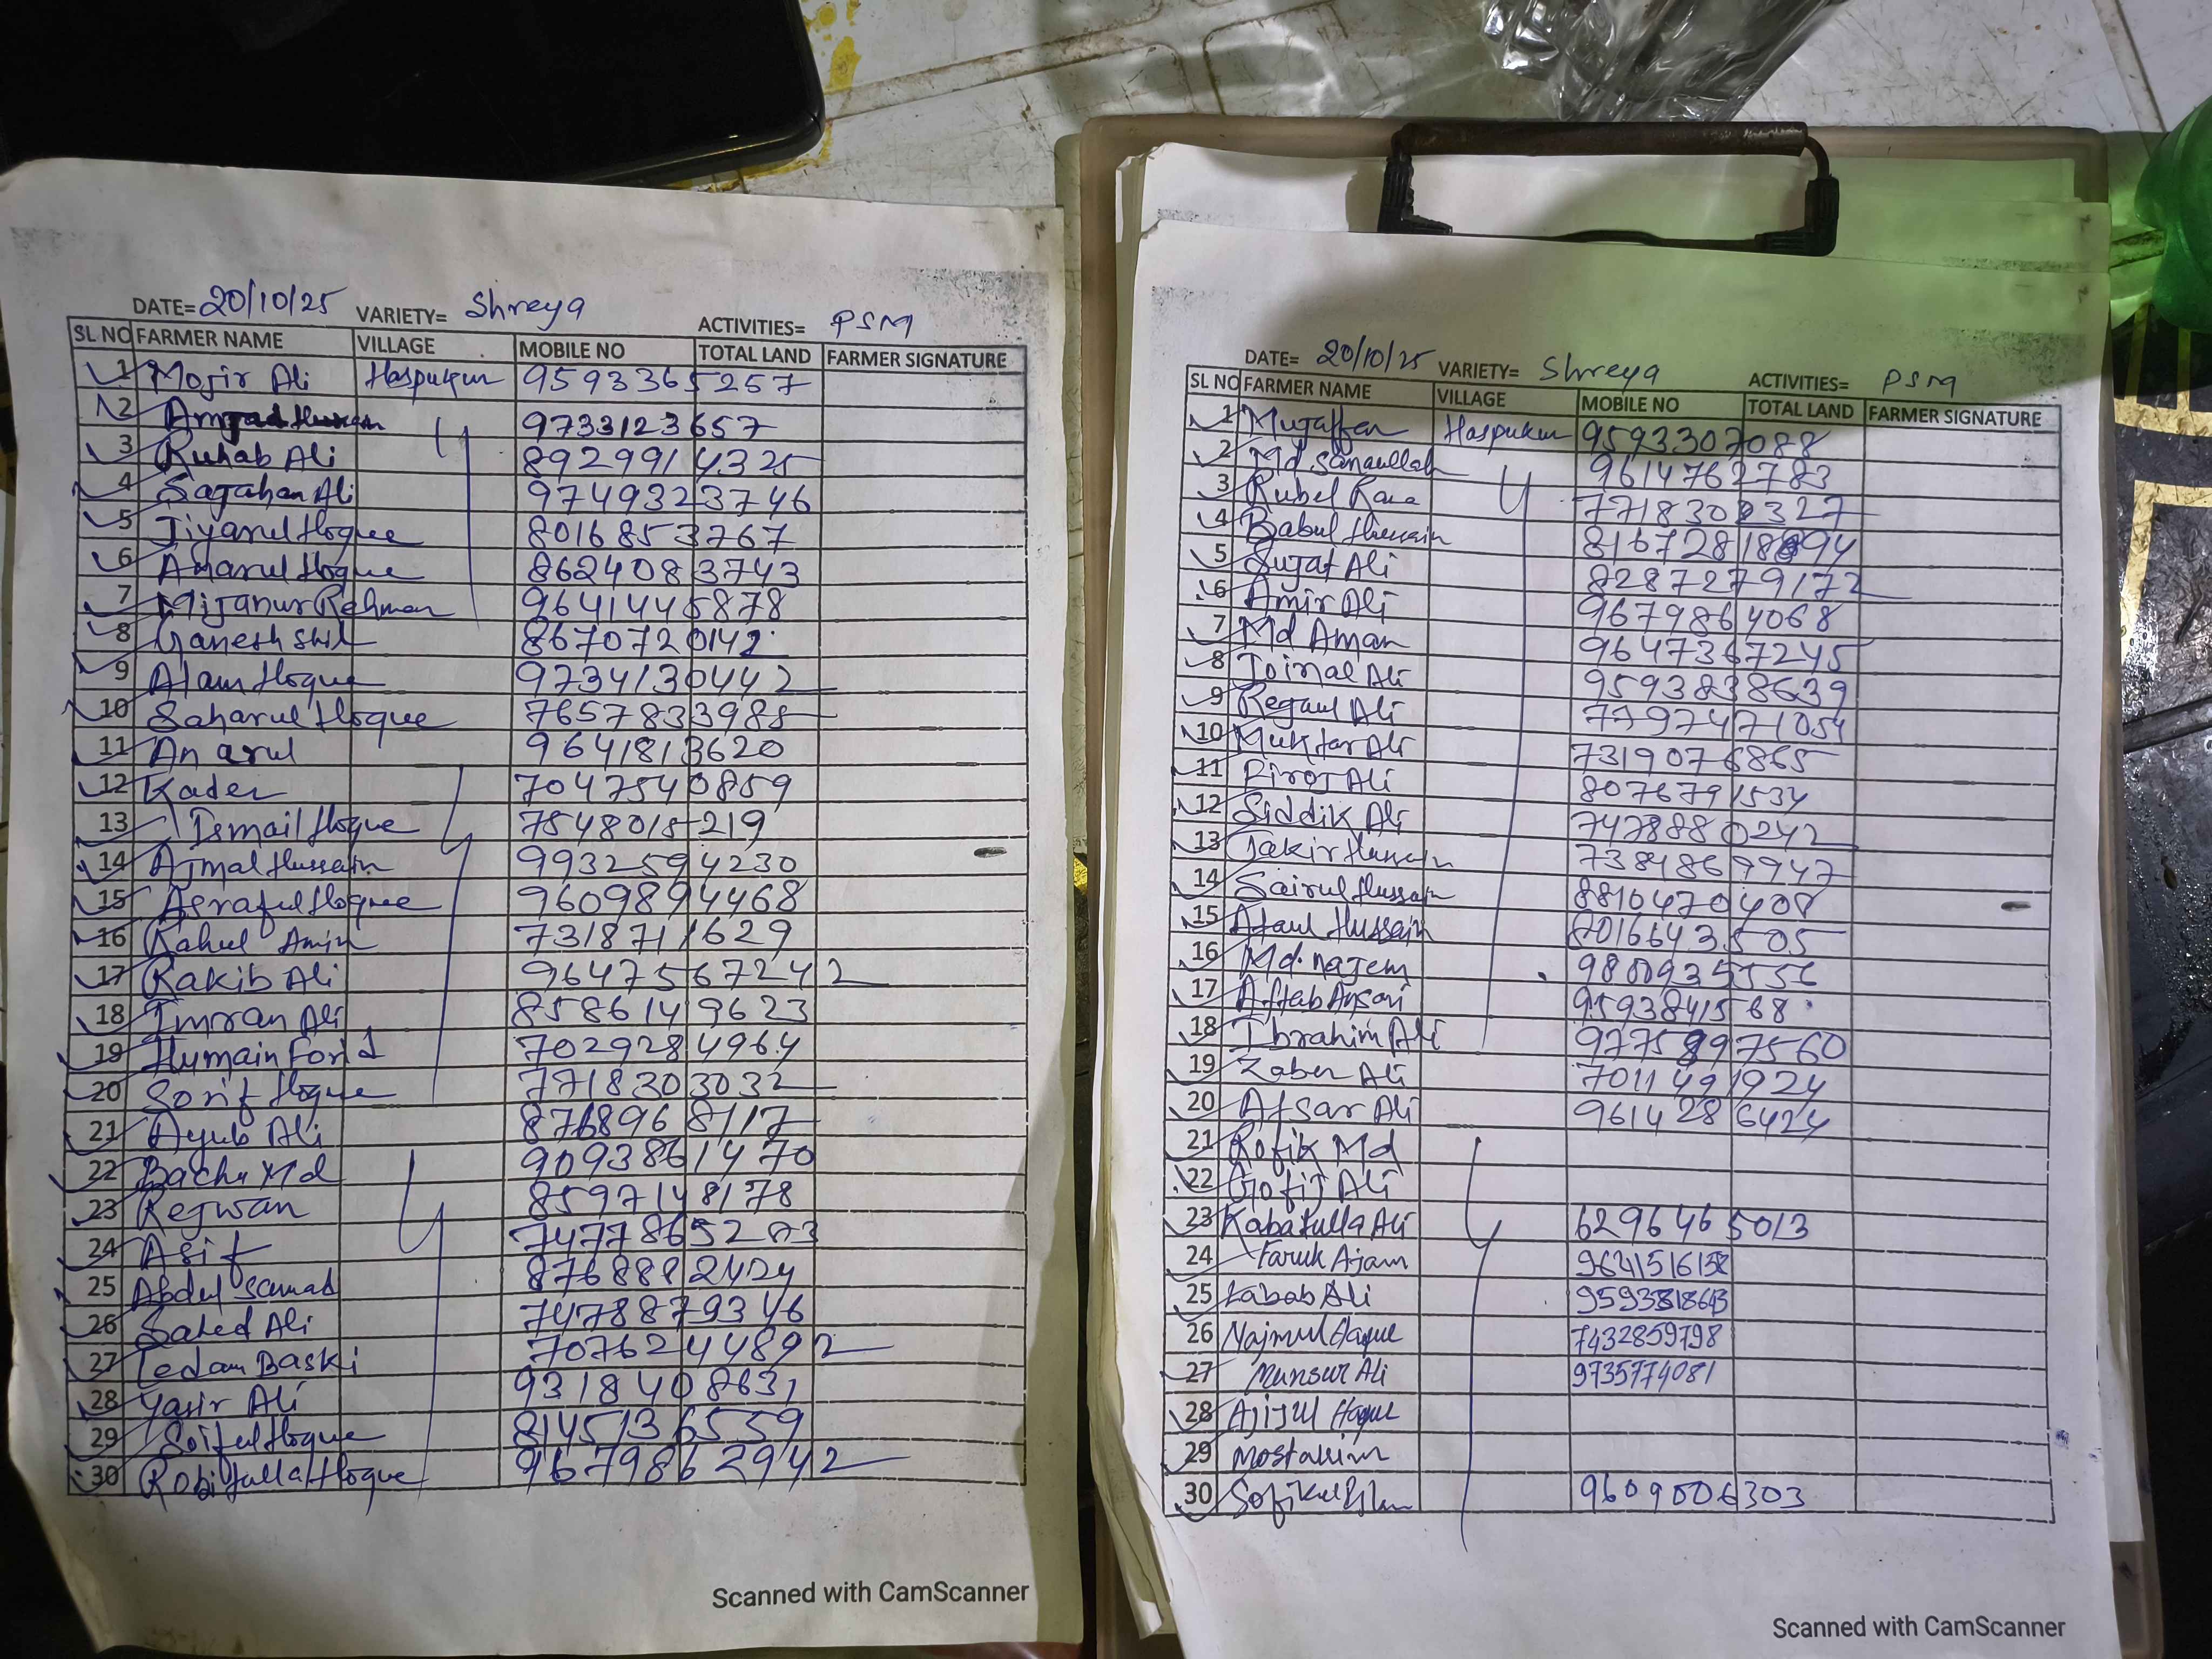 DATE= 20/10/25 VARIETY= Shreya ACTIVITIES= PSM
SL NO FARMER NAME VILLAGE MOBILE NO TOTAL LAND FARMER SIGNATURE
1 Mojir Ali Haspukur 9593365257
2 Amjad Hussain 〃 9733123657
3 Ruhab Ali 8929914325
4 Sajahan Ali 9749323746
5 Jiyarul Hoque 8016853767
6 Anarul Hoque 8624083743
7 Mijanur Rahman 9641445878
8 Ganesh Shil 8670720142
9 Alam Hoque 9734130442
10 Saharul Hoque 7657833985
11 Anarul 9641813620
12 Kader 7047540859
13 Ismail Hoque 〃 7548015219
14 Ajmal Hussain 9932594230
15 Asraful Hoque 9609894468
16 Rahul Amin 7318711629
17 Rakib Ali 9647567242
18 Imran Ali 8586149623
19 Humain Forid 7029284964
20 Sorif Hoque 7718303032
21 Ayub Ali 8768968117
22 Bachu Md 9093861470
23 Rejwan 〃 8597148178
24 Asif
25 Abdul Samad
26 Sahed Ali 7478879346
27 Ledam Baski 7076244892
28 Yasir Ali 9318408631
29 Soiful Hoque 8145136559
30 Robifulla Hoque 9679862942
Scanned with CamScanner
DATE= 20/10/25 VARIETY= Shreya ACTIVITIES= PSM
SL NO FARMER NAME VILLAGE MOBILE NO TOTAL LAND FARMER SIGNATURE
1 Mujaffar Haspukur 9593307088
2 Md Sanaullah 9614762783
3 Rubel Rana 〃
4 Babul Hussain
5 Sujat Ali 8287279172
6 Amir Ali 9679864068
7 Md Aman 9647367245
8 Joinal Ali 9593838639
9 Regaul Ali 7797471054
10 Muktar Ali 7319076865
11 Firoj Ali 8076791534
12 Siddik Ali 7478880242
13 Jakir Hussain 7384869947
14 Sairul Hussain 8810470408
15 Afaul Hussain 8016643505
16 Md. najem 9800935556
17 Aftab Ansari 9593841568
18 Ibrahim Ali
19 Zaber Ali 7011491924
20 Afsar Ali 9614286424
21 Rofik Md
22 Gofij Ali
23 Kabatulla Ali 〃 6296465013
24 Faruk Ajam
25 Labab Ali
26 Najmul Haque 7432859798
27 Mansur Ali 9735774081
28 Ajijul Haque
29 Mostakim
30 9609006303
Scanned with CamScanner